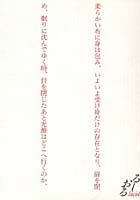 柔らかい布に身は包み、いよいよ受け身だけの存在となり、扉を閉
め、眠りに沈んでゆく時、目を閉じたあと光源はどこへ行くのか、